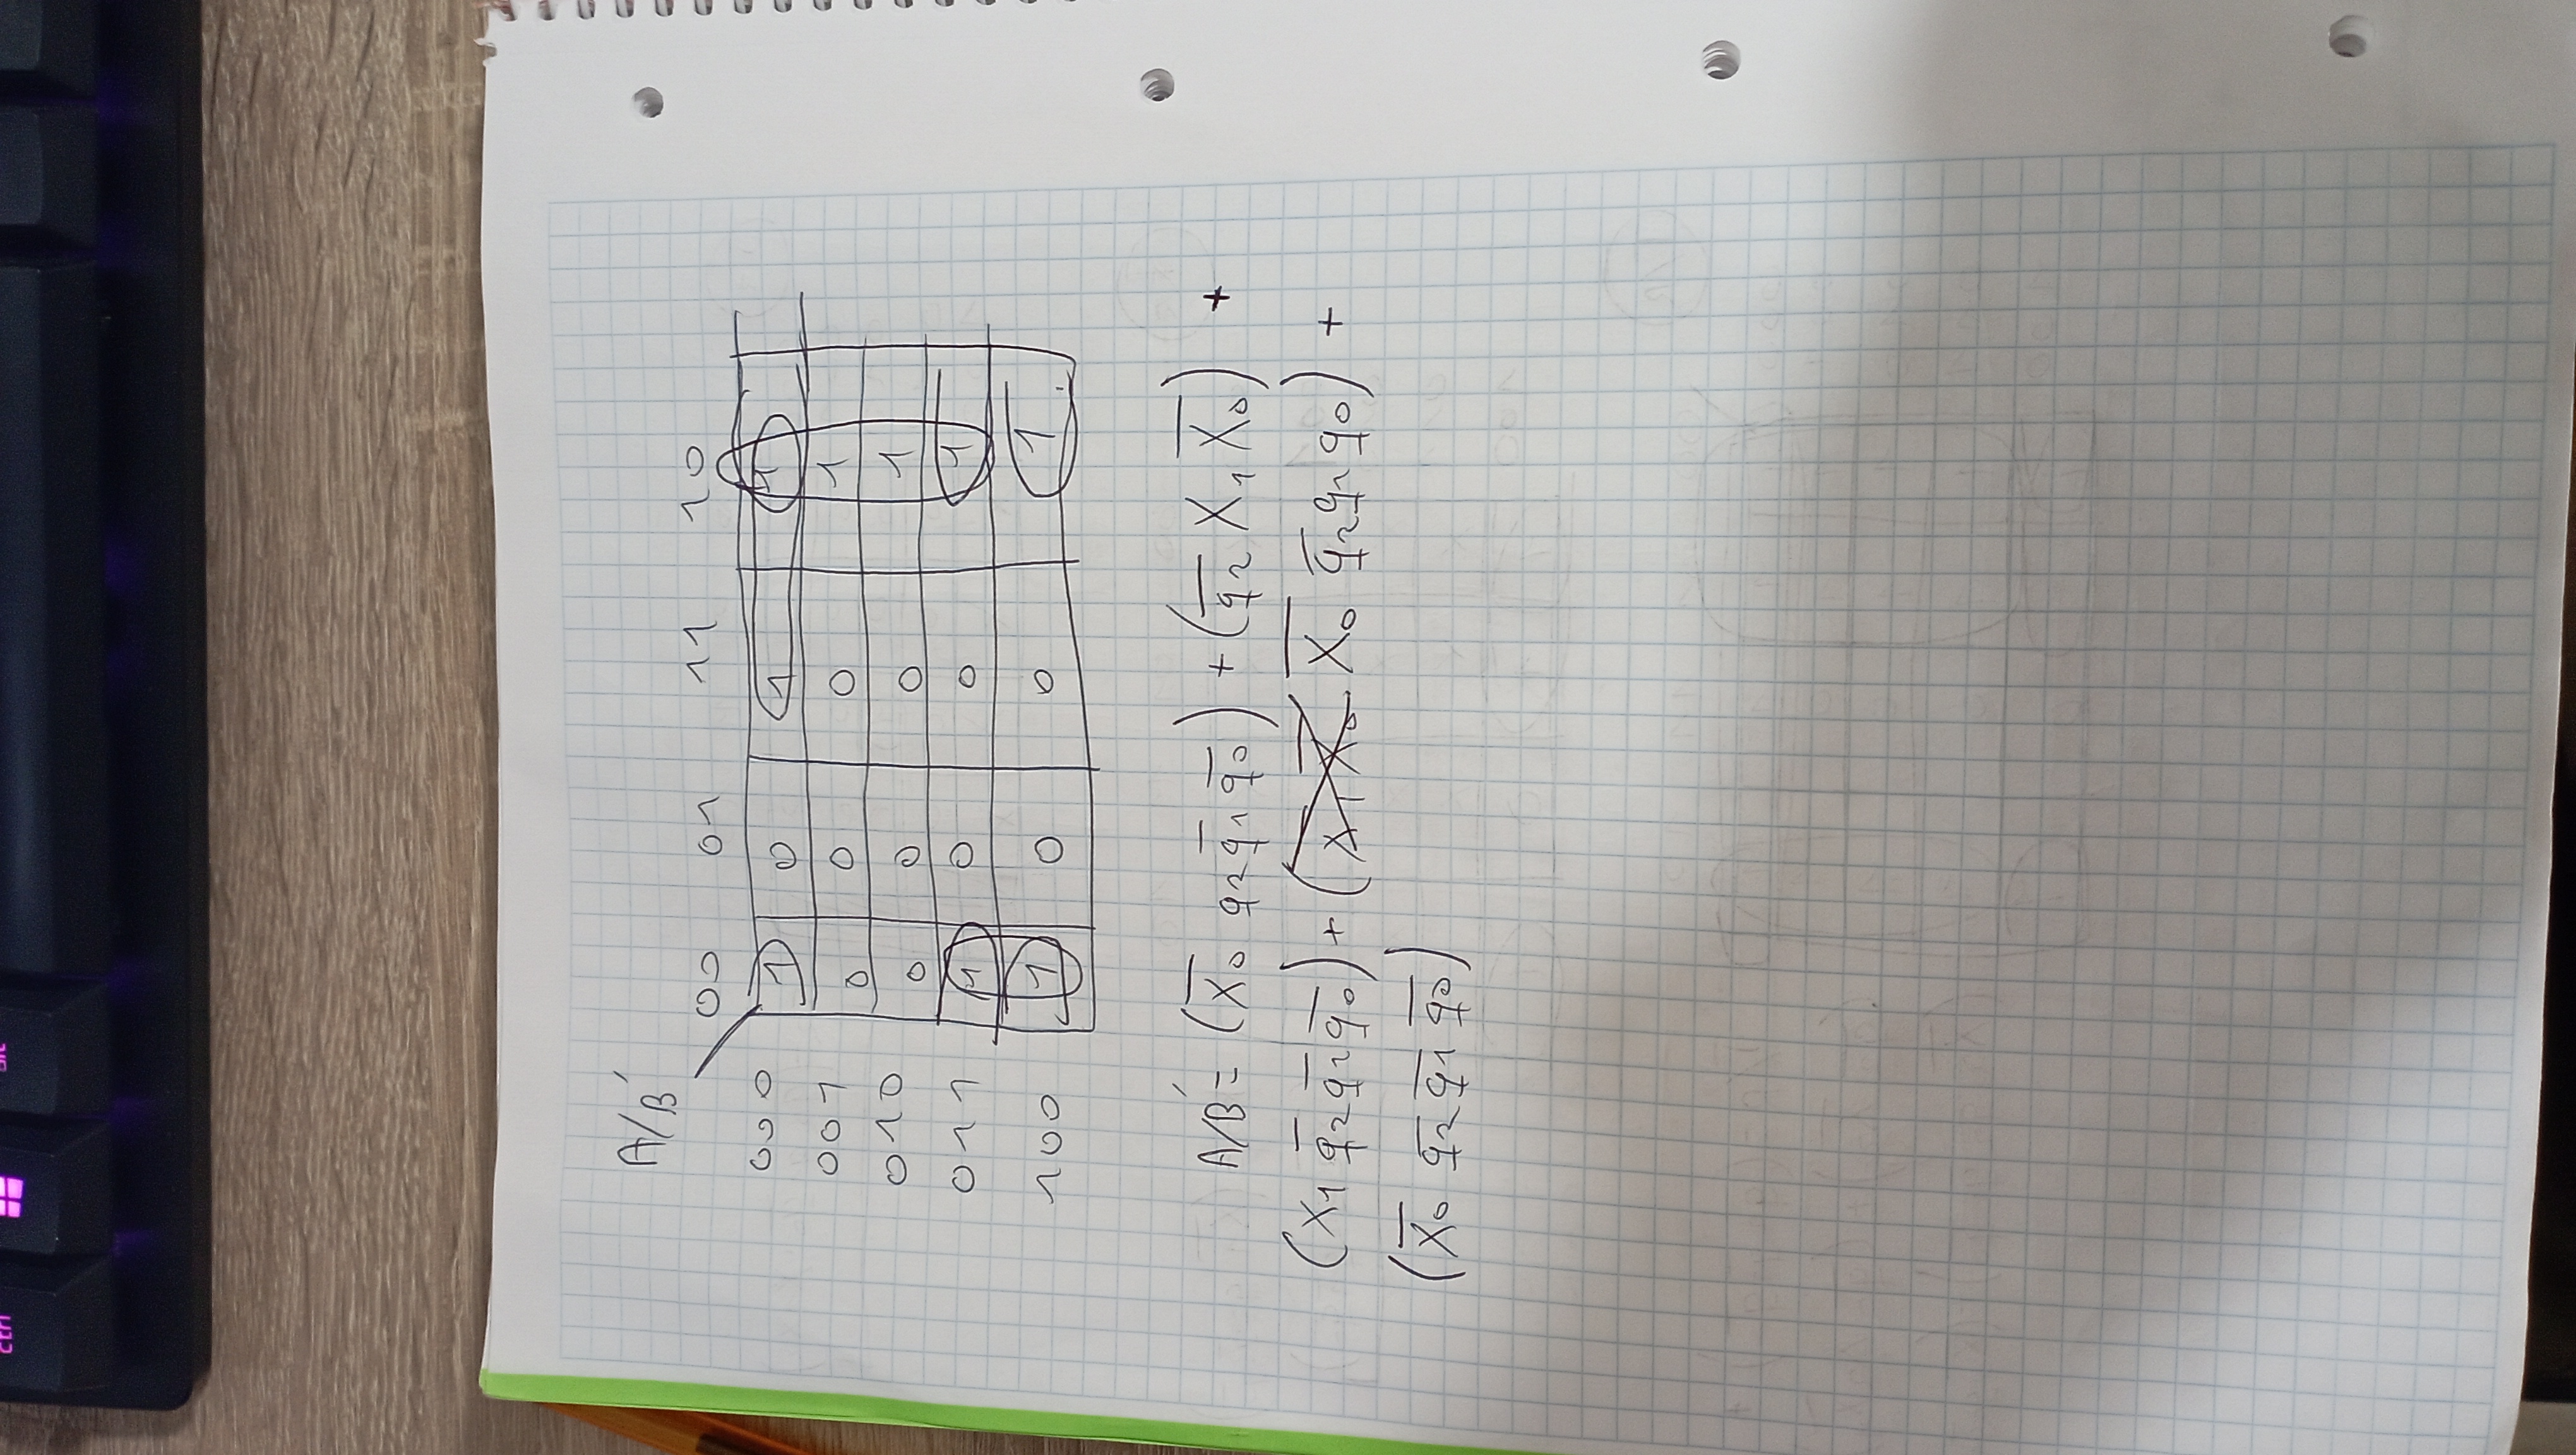 ctrl
alt
A/B'
00 01 11 10
000 1 0 1 1
001 0 0 0 1
010 0 0 0 1
011 1 0 0 1
100 1 0 0 1
A/B' = (X̅₀ q₂ q̅₁ q̅₀) + (q̅₂ X₁ X̅₀) +
(X₁ q̅₂ q̅₂ q̅₀) + (X̅₀ q̅₂ q₂ q₀) +
(X̅₀ q̅₂ q̅₁ q̅₀)